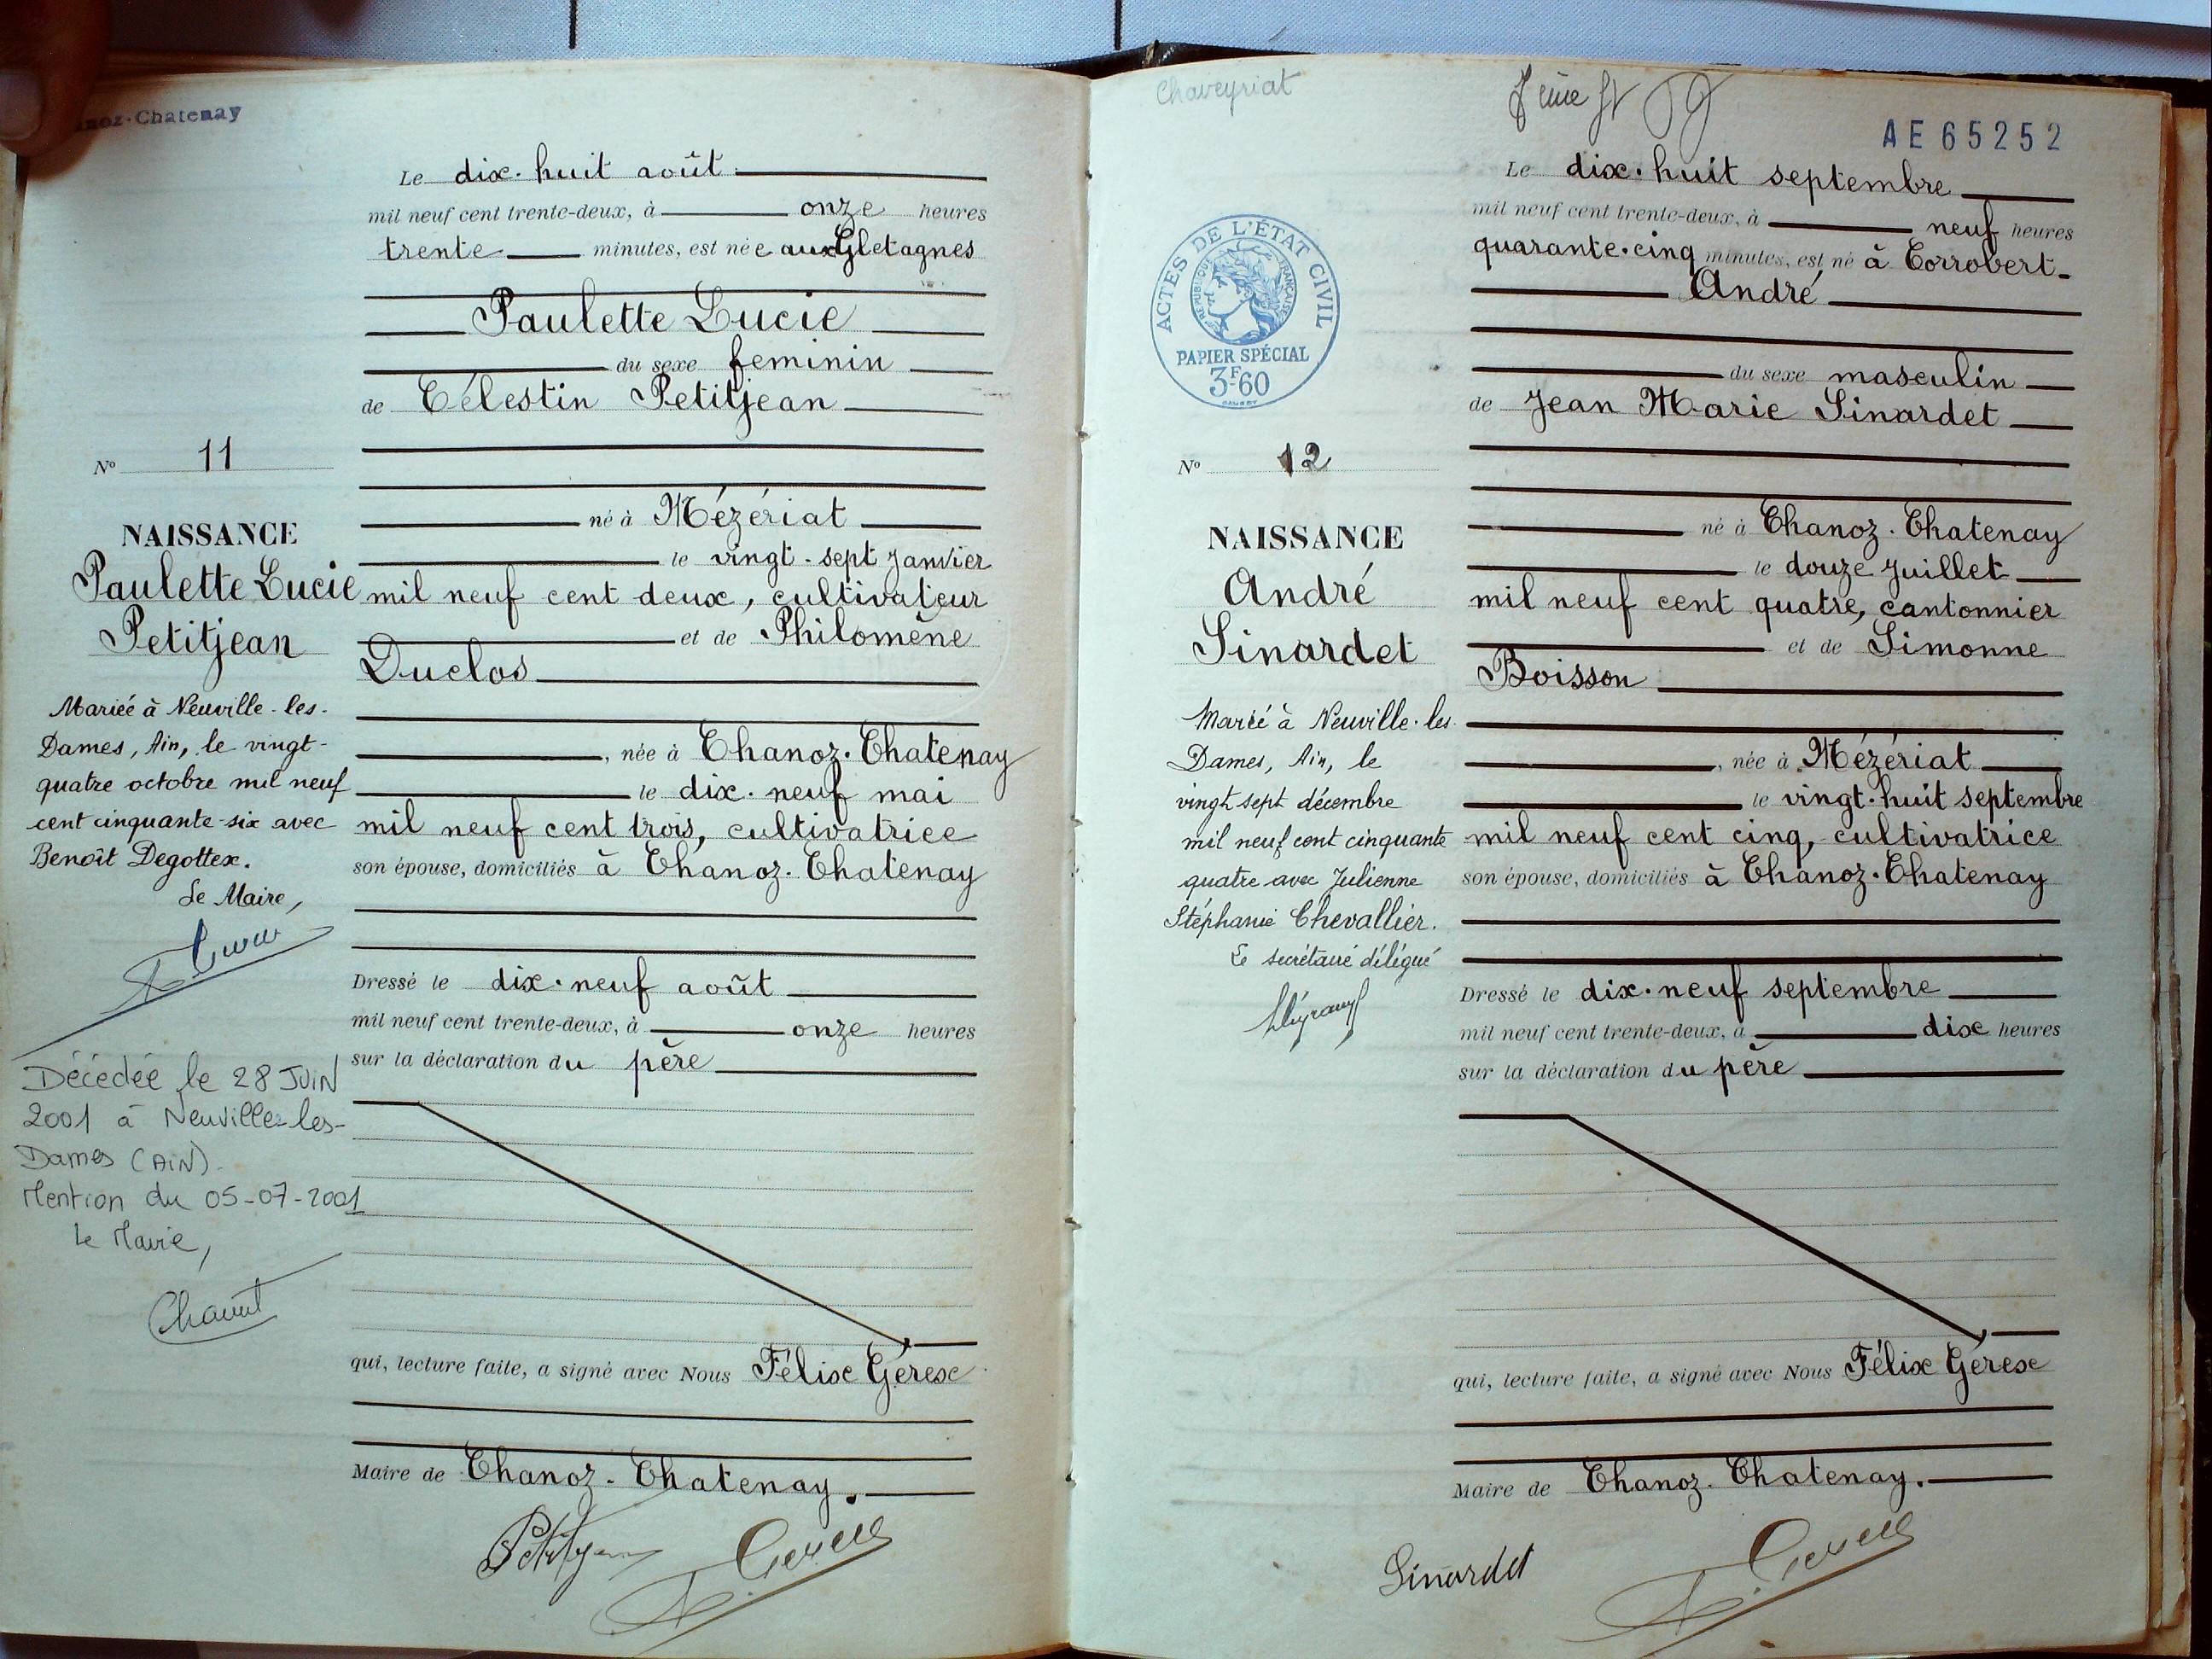 noz-Chatenay
Le dix-huit août
mil neuf cent trente-deux, à onze heures
trente minutes, est née aux Gletagnes
Paulette Lucie
du sexe feminin
de Célestin Petitjean
N° 11
né à Mézériat
NAISSANCE
le vingt-sept Janvier
Paulette Lucie
mil neuf cent deux, cultivateur
Petitjean
et de Philomène
Duclos
Mariée à Neuville-les-
Dames, Ain, le vingt-
quatre octobre mil neuf
cent cinquante-six avec
Benoît Degottex.
Le Maire,
née à Chanoz-Chatenay
le dix-neuf mai
mil neuf cent trois, cultivatrice
son épouse, domiciliés à Chanoz-Chatenay
Dressé le dix-neuf août
mil neuf cent trente-deux, à onze heures
sur la déclaration du père
Décédée le 28 JUIN
2001 à Neuville-les-
Dames (AIN).
Mention du 05-07-2001
Le Maire,
qui, lecture faite, a signé avec Nous Félix Gérex
Maire de Chanoz-Chatenay.
Petitjean
Chaveyriat
AE 65252
Le dix-huit septembre
mil neuf cent trente-deux, à neuf heures
quarante-cinq minutes, est né à Corrobert
André
ACTES DE L'ÉTAT CIVIL
RÉPUBLIQUE FRANÇAISE
PAPIER SPÉCIAL
3F60
du sexe masculin
de Jean Marie Sinardet
N° 12
né à Chanoz-Chatenay
NAISSANCE
le douze Juillet
André
mil neuf cent quatre, cantonnier
Sinardet
et de Simonne
Boisson
Marié à Neuville-les-
Dames, Ain, le
vingt sept décembre
mil neuf cent cinquante
quatre avec Julienne
Stéphanie Chevallier.
Le secrétaire délégué
née à Mézériat
le vingt-huit septembre
mil neuf cent cinq, cultivatrice
son épouse, domiciliés à Chanoz-Chatenay
Dressé le dix-neuf septembre
mil neuf cent trente-deux, à dix heures
sur la déclaration du père
qui, lecture faite, a signé avec Nous Félix Gérex
Maire de Chanoz-Chatenay.
Sinardet